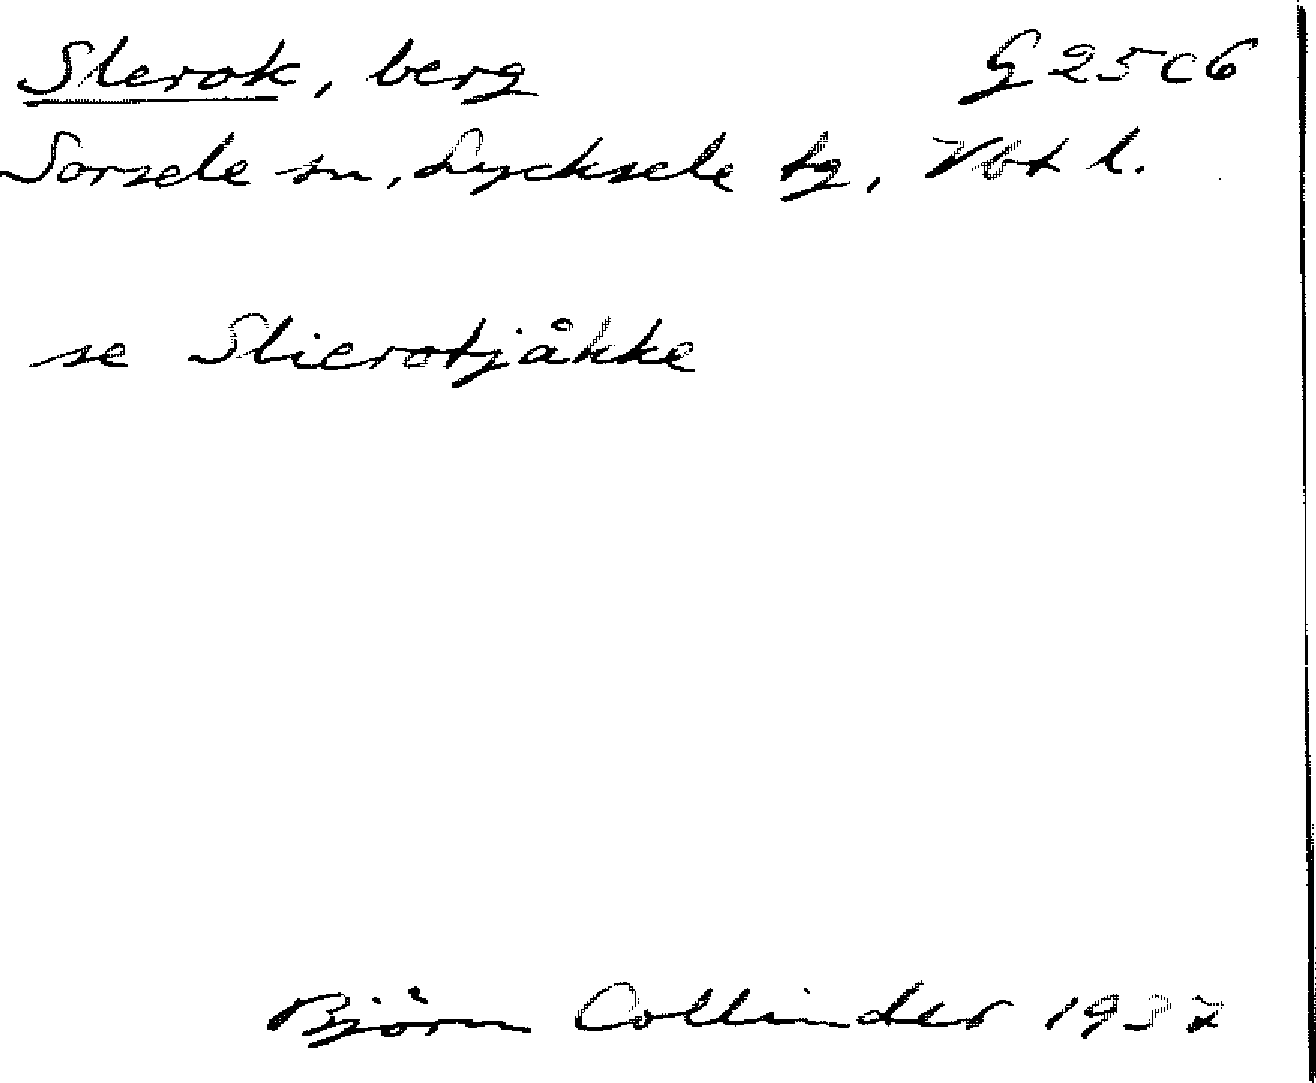 Slerok, berg G 25 C 6
Sorsele sn, Lycksele tg, Vbt l.
se Slierotjåkke
Björn Collinder 1937